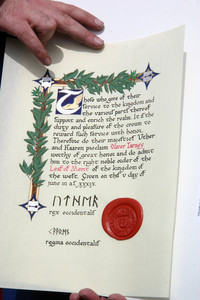 Those who give of their
service to the kingdom and
the various parts thereof
support and enrich the realm. It is the
duty and pleasure of the crown to
reward such service with honor.
Therefore do their majesties Uther
and Kaaren proclaim
worthy of great honor and do admit
to the right noble order of the
Leaf of Merit of the kingdom of
the west. Given on the v day of
june in as xxxiv.
ᚢᛏᚺᛖᚱ
rex occidentalis
regina occidentalis